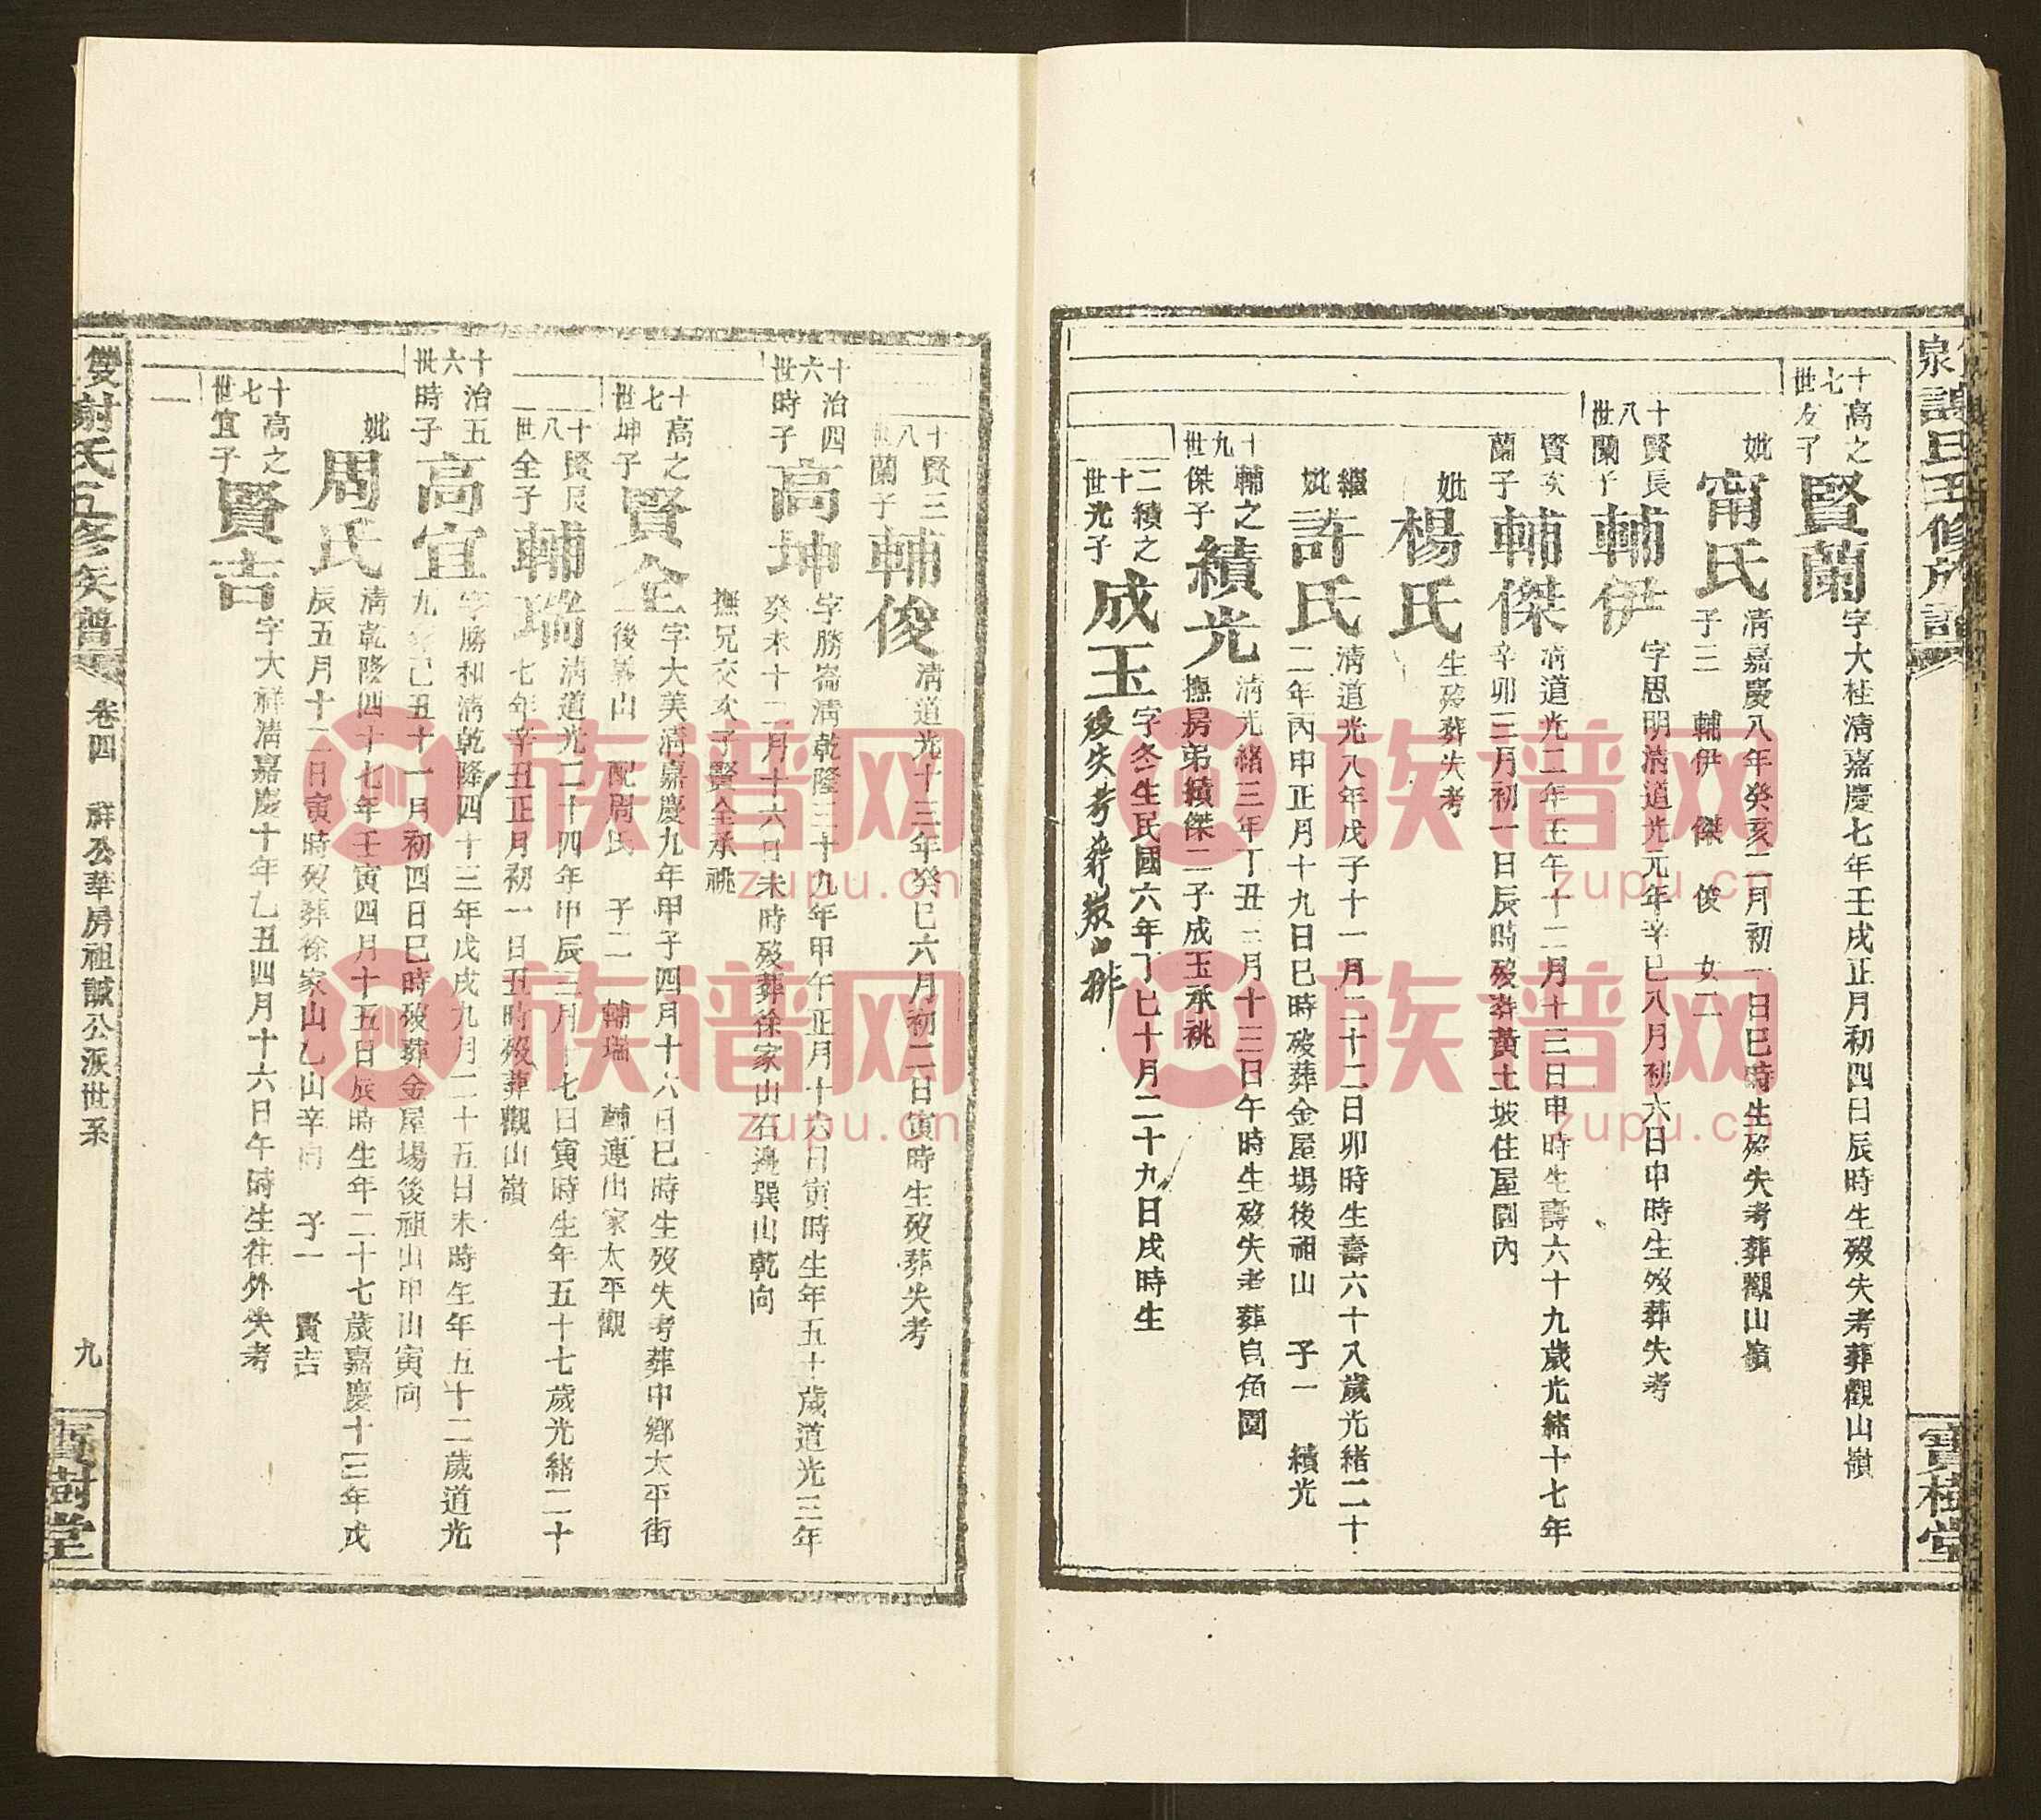 泉謝氏五修族譜
寶樹堂
十七世
高之友子
賢蘭
字大桂清嘉慶七年壬戌正月初四日辰時生歿失考葬觀山嶺
妣
甯氏
清嘉慶八年癸亥二月初一日巳時生歿失考葬觀山嶺
子三 輔伊 傑 俊 女二
十八世
賢長蘭子
輔伊
字思明清道光元年辛巳八月初六日申時生歿葬失考
賢次蘭子
輔傑
清道光二年壬午十二月十三日申時生壽六十九歲光緒十七年
辛卯三月初一日辰時歿葬黃土坡住屋園內
妣
楊氏
生歿葬失考
繼妣
許氏
清道光八年戊子十一月二十二日卯時生壽六十八歲光緒二十
二年丙申正月十九日巳時歿葬金屋場後祖山 子一 績光
十九世
輔之傑子
績光
清光緒三年丁丑三月十三日午時生歿失考葬自角園
撫房弟績傑二子成玉承祧
二十世
績之光子
成玉
字冬生民國六年丁巳十月二十九日戌時生
後失考葬
十八世
賢三蘭子
輔俊
清道光十三年癸巳六月初二日寅時生歿葬失考
十六世
治四時子
高坤
字勝崙清乾隆三十九年甲午正月十六日寅時生年五十歲道光三年
癸未十二月十六日未時歿葬徐家山石邊巽山乾向
撫兄交次子賢全承祧
十七世
高之坤子
賢全
字大美清嘉慶九年甲子四月十六日巳時生歿失考葬中鄉太平街
後義山 配周氏 子二 輔瑞 輔連出家太平觀
十八世
賢長全子
輔瑞
清道光二十四年甲辰三月十七日寅時生年五十七歲光緒二十
七年辛丑正月初一日丑時歿葬觀山嶺
十六世
治五時子
高宜
字勝和清乾隆四十三年戊戌九月二十五日未時生年五十二歲道光
九年己丑十一月初四日巳時歿葬金屋場後祖山申山寅向
妣
周氏
清乾隆四十七年壬寅四月十五日辰時生年二十七歲嘉慶十三年戊
辰五月十二日寅時歿葬徐家山乙山辛向 子一 賢吉
十七世
高之宜子
賢吉
字大祥清嘉慶十年乙丑四月十六日午時生往外失考
雙
謝氏五修族譜
卷四 祥公華房祖諴公派世系
九
寶樹堂
族谱网
zupu.cn
族谱网
zupu.cn
族谱网
zupu.cn
族谱网
zupu.cn